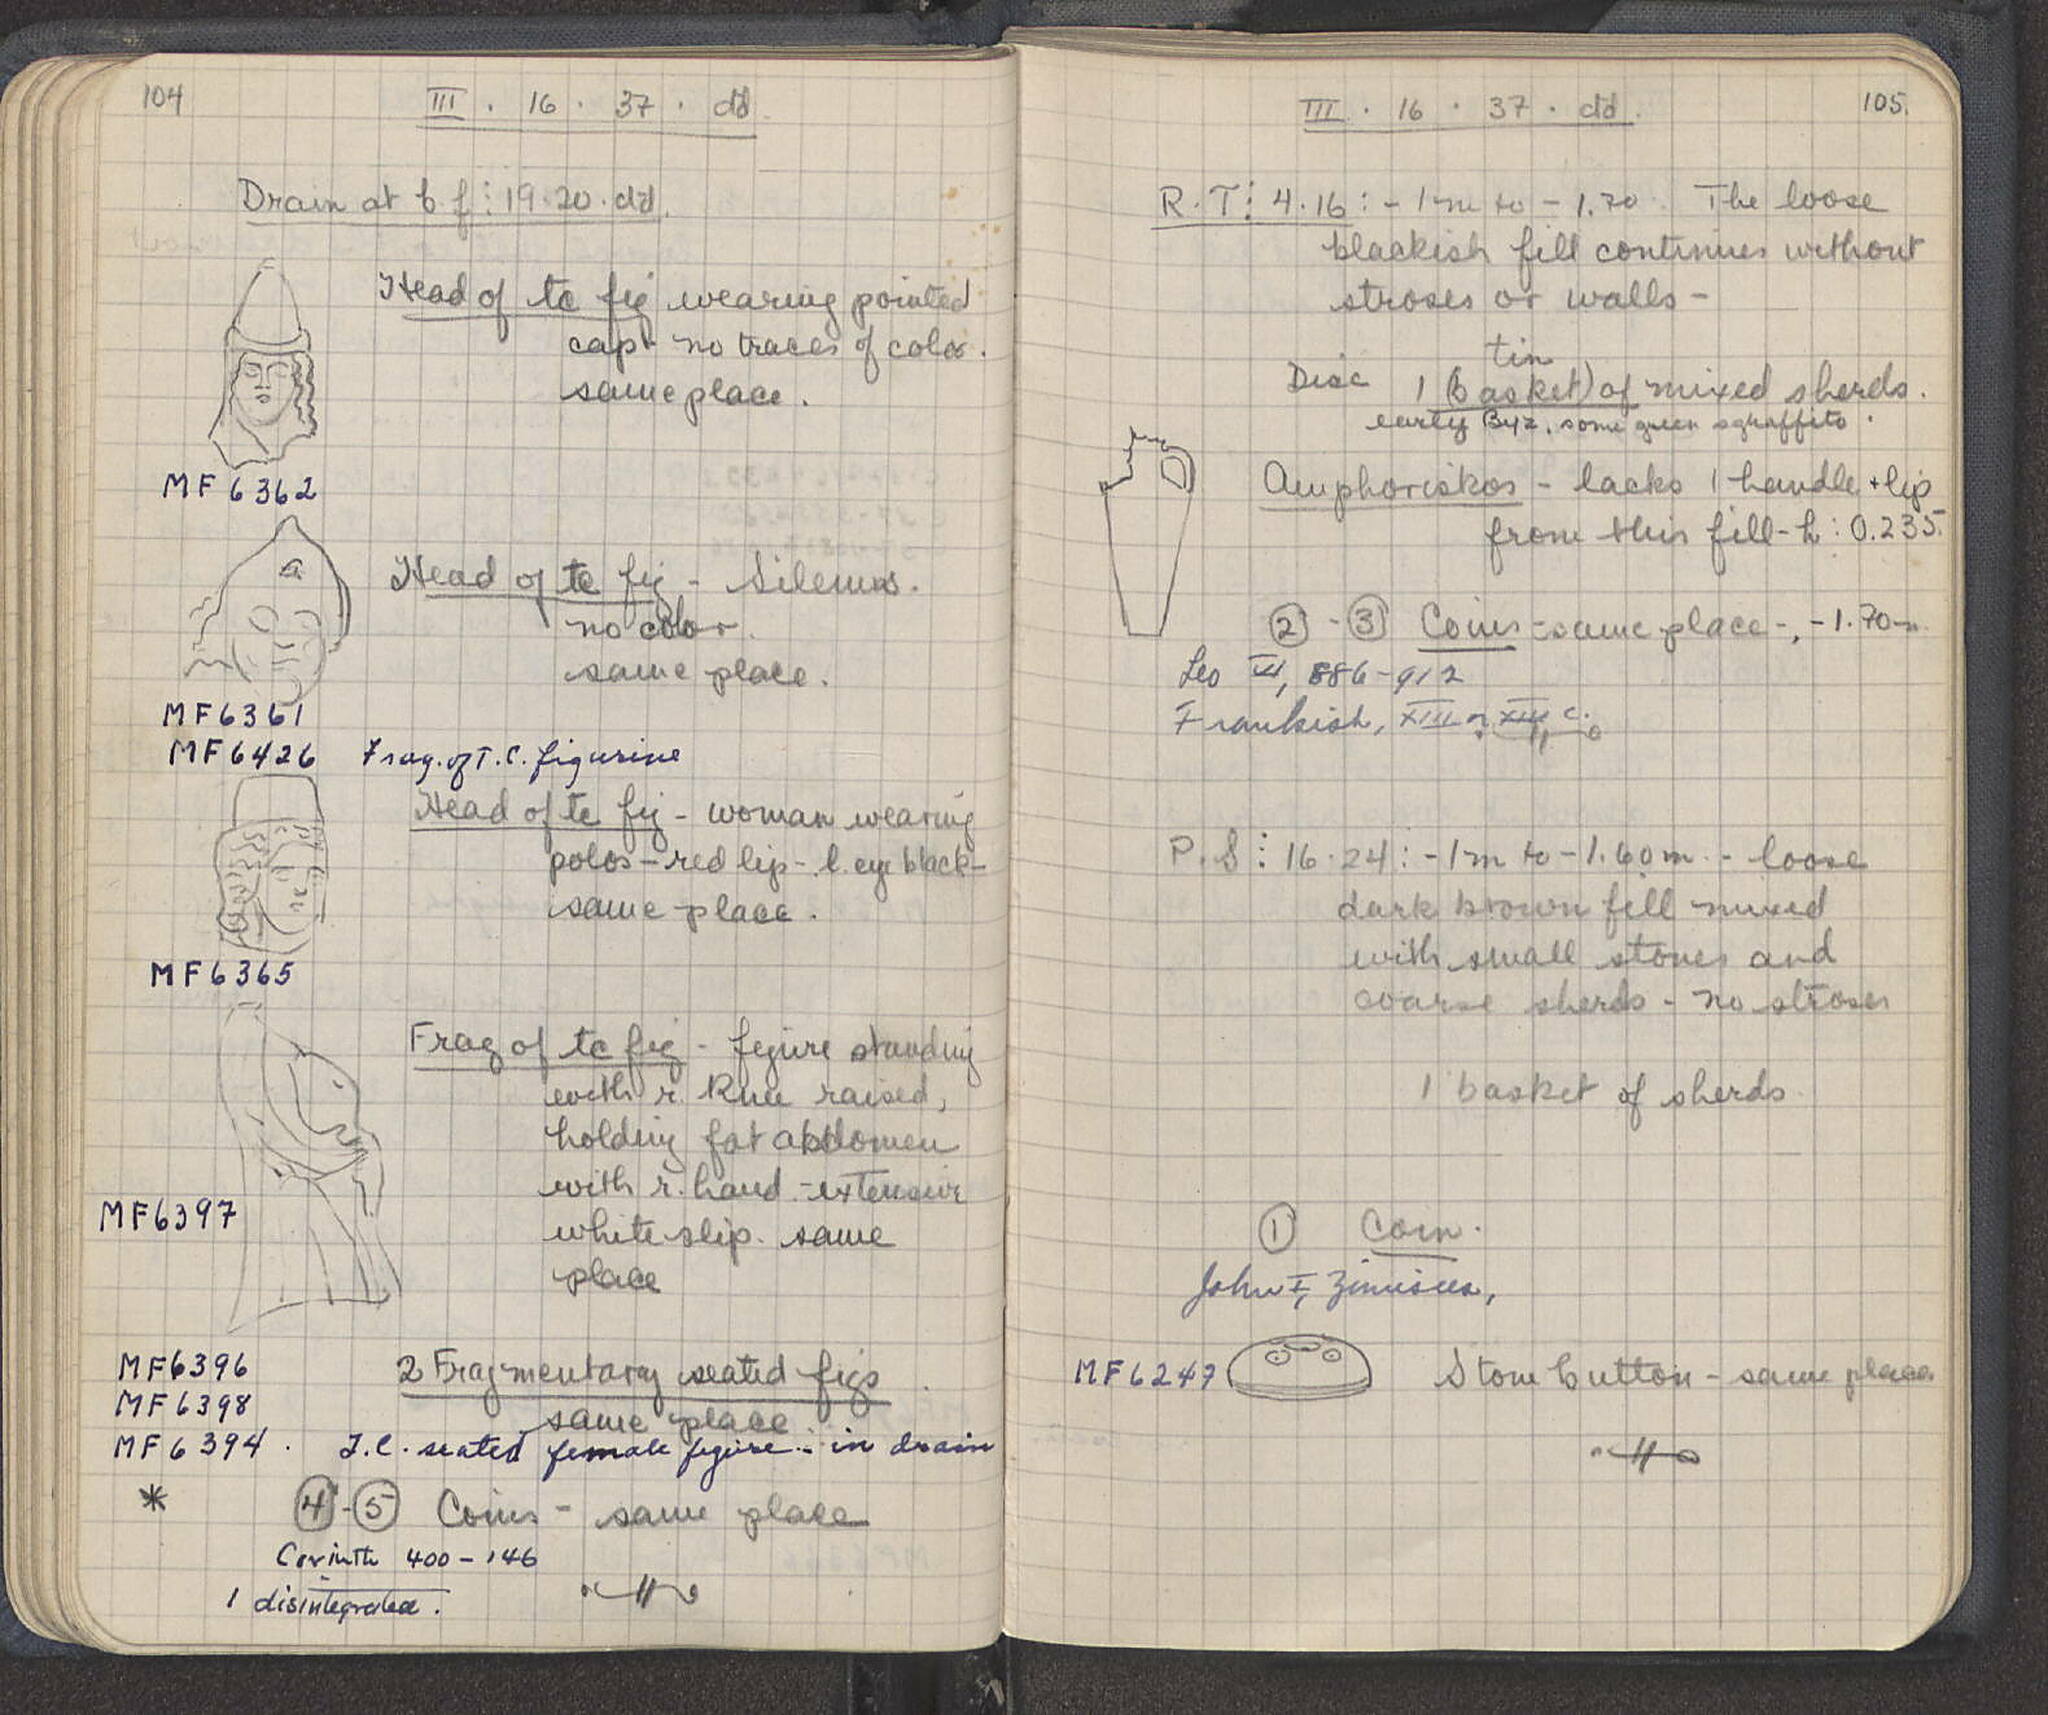 104
III · 16 · 37 · dd
Drain at b f : 19.20. dd.
Head of tc fig wearing pointed
cap - no traces of color.
same place.
MF 6362
a
Head of tc fig - Silenus.
no color.
same place.
MF6361
MF6426 Frag. of T.C. figurine
Head of tc fig - woman wearing
polos - red lip - l. eye black -
same place.
MF6365
Frag of tc fig - figure standing
with r. knee raised,
holding fat abdomen
with r. hand - extensive
white slip. same
place
MF6397
MF6396 2 Fragmentary seated figs
MF6398 same place.
MF6394. T.C. seated female figure - in drain
* 4 - 5 Coins - same place
Corinth 400 - 146
1 disintegrated.
105.
III · 16 · 37 · dd.
R.T : 4.16 : - 1 m to - 1.70. The loose
blackish fill continues without
stroses or walls -
tin
Disc 1 (basket) of mixed sherds.
early Byz. some green sgraffito.
Amphoriskos - lacks 1 handle + lip
from this fill - h : 0.235.
2 - 3 Coins - same place -, - 1.70 m.
Leo VI, 886-912
Frankish, XIII or XIV c.
P.S : 16.24 : - 1 m to - 1.60 m. - loose
dark brown fill mixed
with small stones and
coarse sherds - no stroses
1 basket of sherds.
1 Coin.
John I, Zimisces,
MF6247 Stone button - same place.